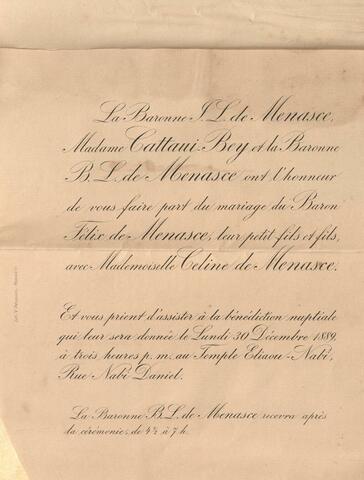 La Baronne J. L. de Menasce,
Madame Cattaui-Bey et la Baronne
B. L. de Menasce ont l'honneur
de vous faire part du mariage du Baron
Félix de Menasce, leur petit-fils et fils,
avec Mademoiselle Celine de Menasce.
Et vous prient d'assister à la bénédiction nuptiale
qui leur sera donnée le Lundi 30 Décembre 1889,
à trois heures p. m. au Temple Eliaou-Nabi,
Rue Nabi Daniel.
La Baronne B. L. de Menasce recevra après
la cérémonie, de 4½ à 7 h.